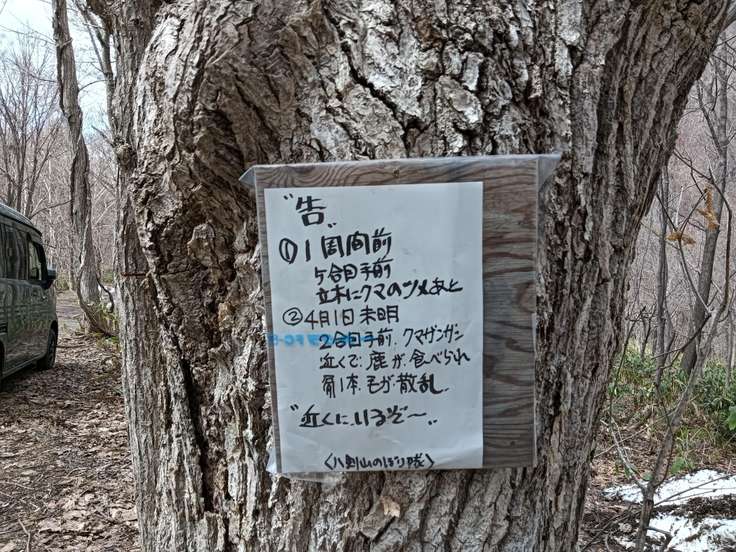 "告"
① 1週間前
5合目手前
立木にクマのツメあと
② 4月1日未明
2合目手前.クマザンザン
近くで.鹿が.食べられ
骨1本.毛が散乱.
"近くに.いるぞ〜"
〈八剣山のぼり隊〉